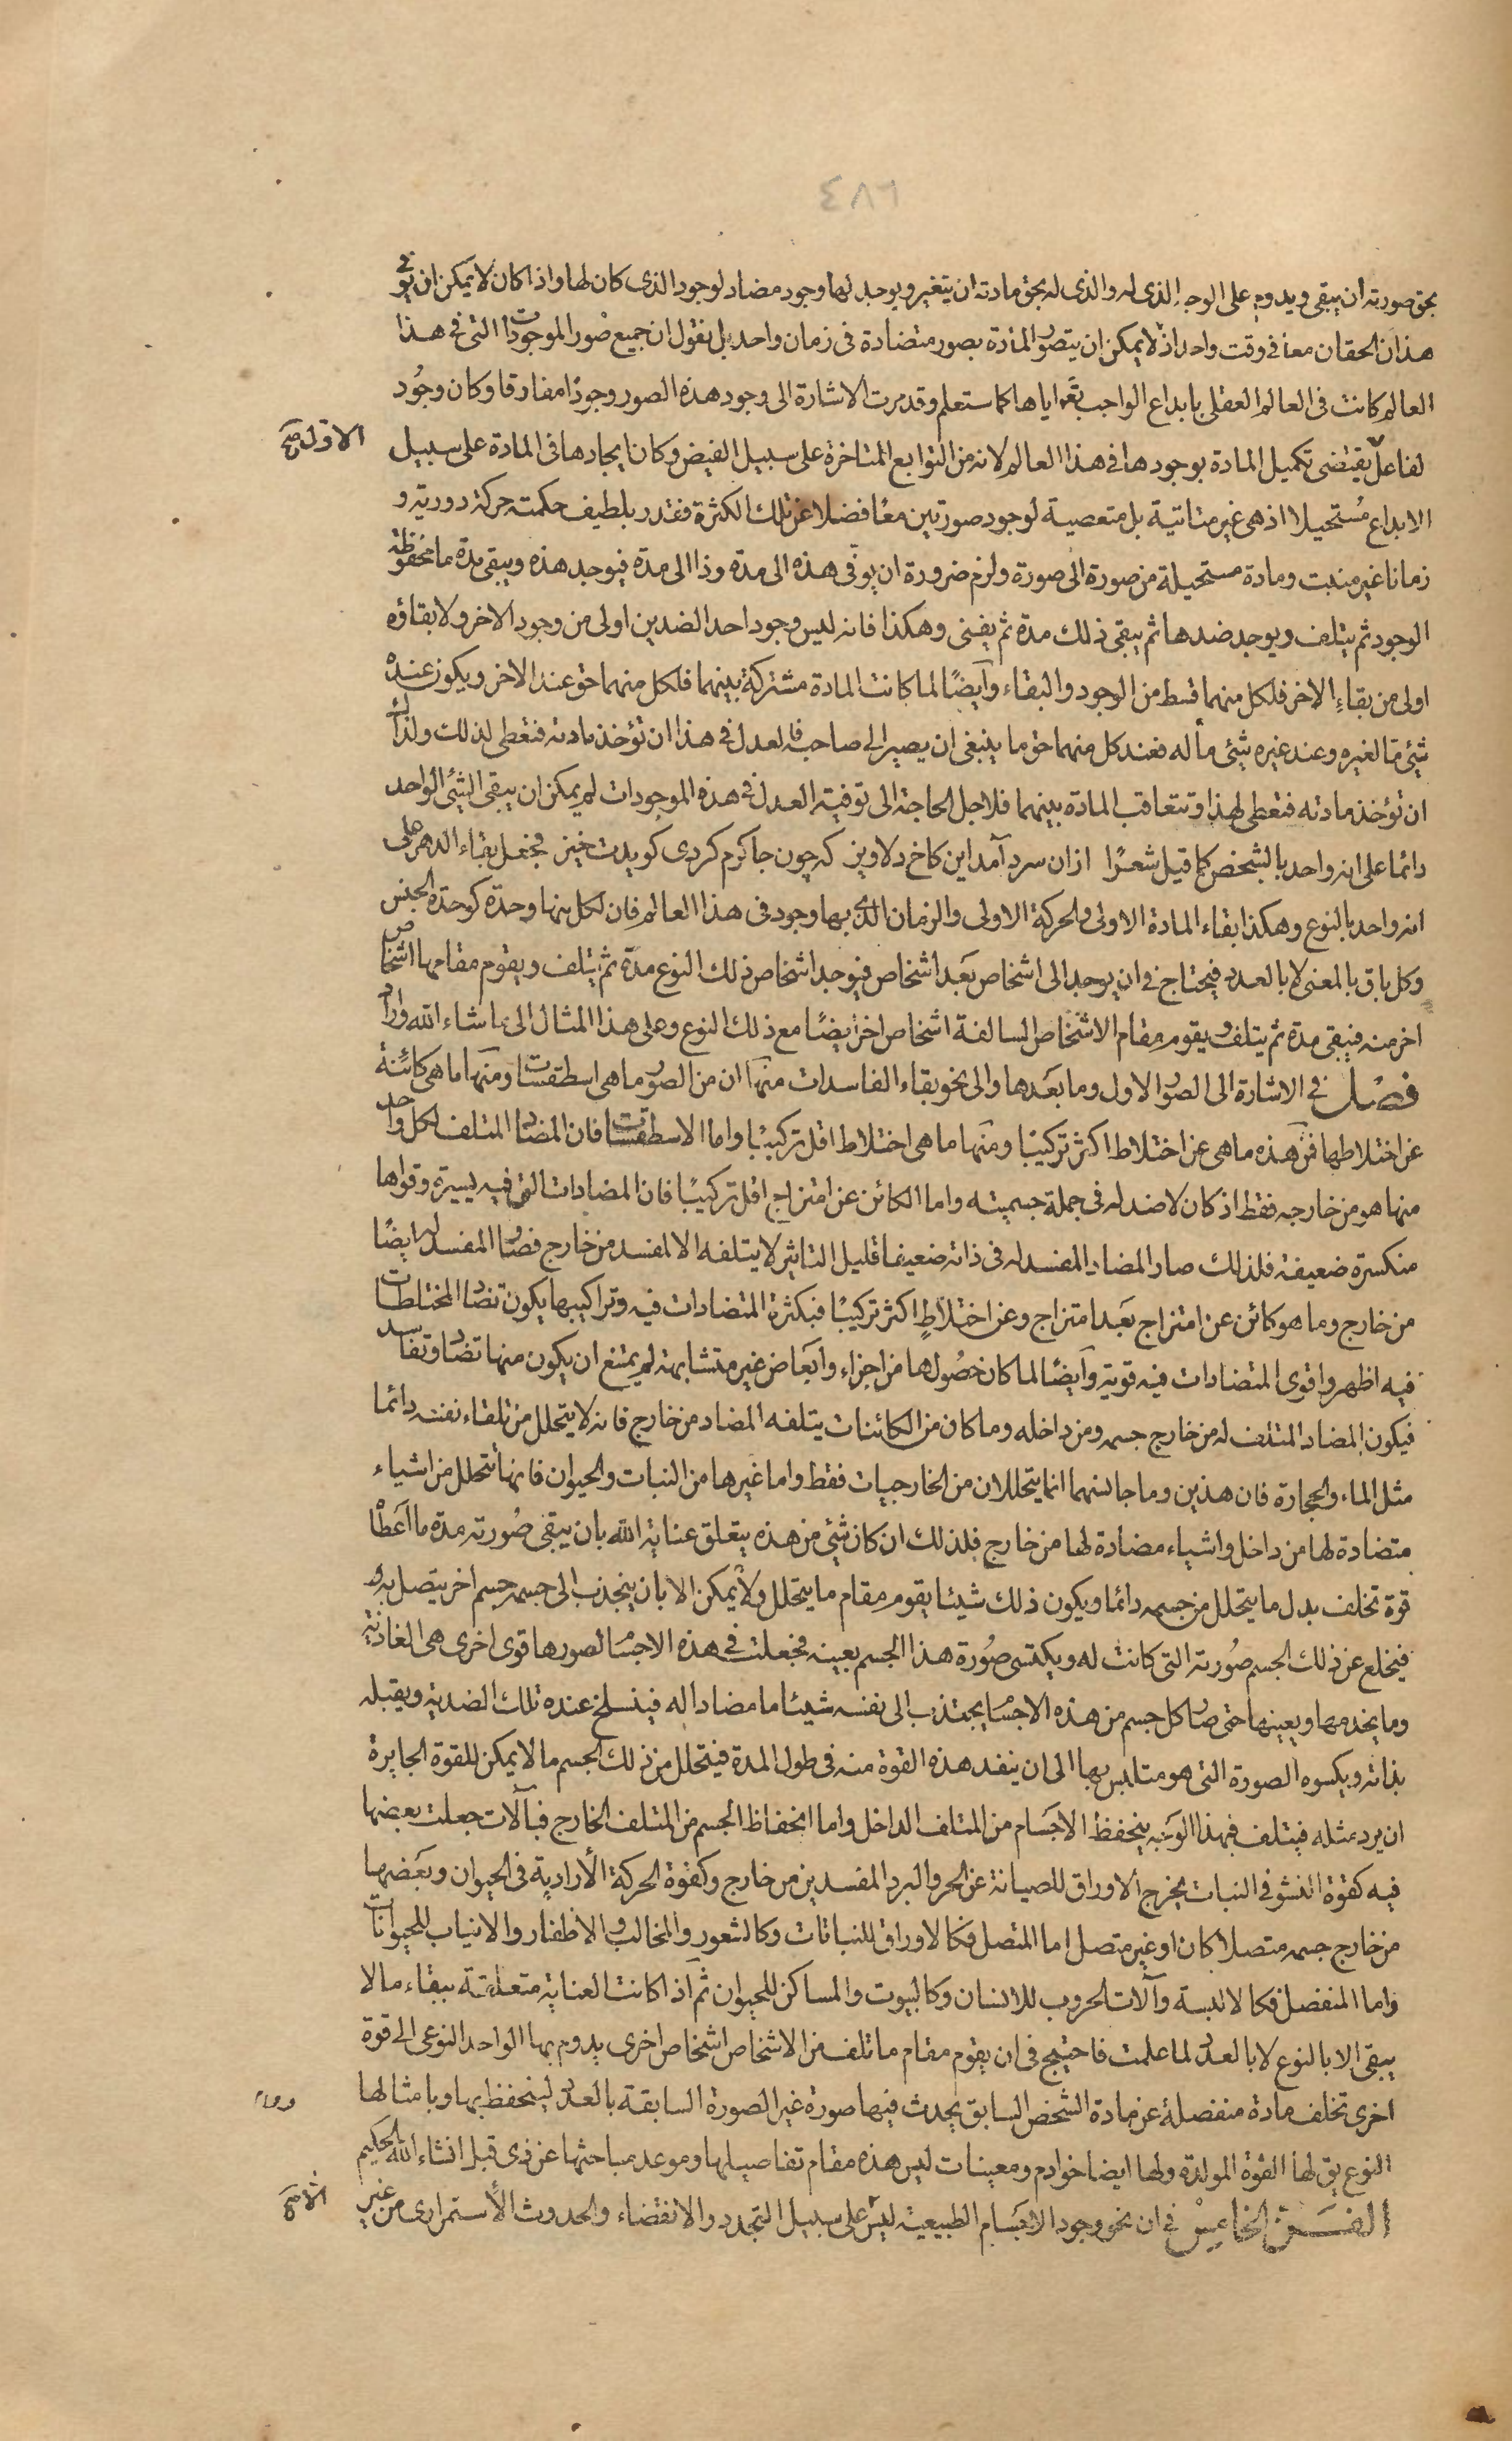 ٤٨٦
بحق صورته ان يبقى ويدوم على الوجه الذى له والذى له بحق مادته ان يتغير ويوجد لها وجود مضاد لوجود الذى كان لها واذا كان لا يمكن ان يوفى
هذان الحقان معا فى وقت واحد اذ لا يمكن ان يتصور المادة بصور متضادة فى زمان واحد بل نقول ان جميع صور الموجودات التى فى هذا
العالم كانت فى العالم العقلى بابداع الواجب تعالى اياها كما ستعلم وقد مرت الاشارة الى وجود هذه الصور وجودا مفارقا وكان وجود
الاول صح
لفاعل يقتضى تكميل المادة بوجودها فى هذا العالم لانه من التوابع المتاخرة على سبيل الفيض وكان ايجادها فى المادة على سبيل
الابداع مستحيلا اذ هى غير متاتية بل متعصية لوجود صورتين معا فضلا عن تلك الكثرة فقدر بلطيف حكمته حركة دورية و
زمانا غير منبت ومادة مستحيلة من صورة الى صورة ولزم ضرورة ان يوفى هذه الى مدة وذا الى مدة فيوجد هذه ويبقى مدة ما محفوظة
الوجود ثم يتلف ويوجد ضدها ثم يبقى ذلك مدة ثم يفنى وهكذا فانه ليس وجود احد الضدين اولى من وجود الاخر ولا بقاؤه
اولى من بقاء الاخر فلكل منهما قسط من الوجود والبقاء وايضا لما كانت المادة مشتركة بينهما فلكل منهما حق عند الاخر ويكون عنده
شئ ما لغيره وعند غيره شئ ما له فعند كل منهما حق ما ينبغى ان يصير الى صاحبه فالعدل فى هذا ان تؤخذ مادته فتعطى لذلك ولذاك
ان تؤخذ مادته فتعطى لهذا وتتعاقب المادة بينهما فلاجل الحاجة الى توفية العدل فى هذه الموجودات لم يمكن ان يبقى الشئ الواحد
دائما على انه واحد بالشخص كما قيل شعرا ازان سرد آمد اين كاخ دلاويز كه چون جا كرم كردى كويدت خيز فجعل بقاء الدهر على
انه واحد بالنوع وهكذا بقاء المادة الاولى والحركة الاولى والزمان الذى بها وجود فى هذا العالم فان لكل منها وحدة كوحدة الجنس
وكل باق بالمعنى لا بالعدد فيحتاج فى ان يوجد الى اشخاص بعد اشخاص فيوجد اشخاص ذلك النوع مدة ثم يتلف ويقوم مقامها اشخاص
اخر منه فيبقى مدة ثم يتلف ويقوم مقام الاشخاص السالفة اشخاص اخر ايضا مع ذلك النوع وعلى هذا المثال الى ما شاء الله واراد
فصل فى الاشارة الى الصور الاول وما بعدها والى نحو بقاء الفاسدات منها ان من الصور ما هى اسطقسات ومنها ما هى كائنة
عن اختلاطها فمن هذه ما هى عن اختلاط اكثر تركيبا ومنها ما هى اختلاط اقل تركيبا واما الاسطقسات فان المضاد المتلف لكل واحد
منها هو من خارجه فقط اذ كان لا ضد له فى جملة جسميته واما الكائن عن امتزاج اقل تركيبا فان المضادات التى فيه يسيرة وقواها
منكسرة ضعيفة فلذلك صار المضاد المفسد له فى ذاته ضعيفا قليل التاثير لا يتلفه الا لمفسد من خارج فصار المفسد له ايضا
من خارج وما هو كائن عن امتزاج بعد امتزاج وعن اختلاط اكثر تركيبا فبكثرة المتضادات فيه وتراكيبها يكون تضاد المختلطات
فيه اظهر واقوى المتضادات فيه قوية وايضا لما كان حصولها من اجزاء وابعاض غير متشابهة لم يمتنع ان يكون منها تضاد وتفاسد
فيكون المضاد المتلف له من خارج جسمه ومن داخله وما كان من الكائنات يتلفه المضاد من خارج فانه لا يتحلل من تلقاء نفسه دائما
مثل الماء والحجارة فان هذين وما جانسهما انما يتحللان من الخارجيات فقط واما غيرها من النبات والحيوان فانها تتحلل من اشياء
متضادة لها من داخل واشياء مضادة لها من خارج فلذلك ان كان شئ من هذه يتعلق عناية الله بان يبقى صورته مدة ما اعطا
قوة تخلف بدل ما يتحلل من جسمه دائما ويكون ذلك شيئا يقوم مقام ما يتحلل ولا يمكن الا بان ينجذب الى جسمه جسم اخر يتصل به و
فيخلع عن ذلك الجسم صورته التى كانت له ويكتسى صورة هذا الجسم بعينه فجعلت فى هذه الاجسام لصورها قوى اخرى هى الغاذية
وما يخدمها ويعينها حتى صار كل جسم من هذه الاجسام يجتذب الى نفسه شيئا ما مضادا له فينسلخ عنده تلك الضدية ويقبله
بذاته ويكسوه الصورة التى هو متلبس بها الى ان ينفد هذه القوة منه فى طول المدة فيتحلل من ذلك الجسم ما لا يمكن للقوة الجابرة
ان يرد مثله فيتلف فبهذا الوجه ينحفظ الاجسام من المتلف الداخل واما انحفاظ الجسم من المتلف الخارج فبآلات جعلت بعضها
فيه كقوة النشو فى النبات يخرج الاوراق للصيانة عن الحر والبرد المفسدين من خارج وكقوة الحركة الارادية فى الحيوان وبعضها
من خارج جسمه متصلا كان او غير متصل اما المتصل فكالاوراق للنباتات وكالشعور والمخالب والاظفار والانياب للحيوانات
واما المنفصل فكالالبسة وآلات الحروب للانسان وكالبيوت والمساكن للحيوان ثم اذ كانت العناية متعلقة ببقاء ما لا
يبقى الا بالنوع لا بالعدد لما علمت فاحتيج فى ان يقوم مقام ما تلف من الاشخاص اشخاص اخرى يدوم بها الواحد النوعى الى قوة
اخرى تخلف مادة منفصلة عن مادة الشخص السابق يحدث فيها صورة غير الصورة السابقة بالعدد لينحفظ بها وبامثالها
النوع يق لها القوة المولدة ولها ايضا خوادم ومعينات ليس هذه مقام تفاصيلها وموعد مباحثها عن ذى قبل انشاء الله الحكيم
الفن الخامس فى ان نحو وجود الاجسام الطبيعية ليس على سبيل التجدد والانقضاء والحدوث الاستمرارى من غير